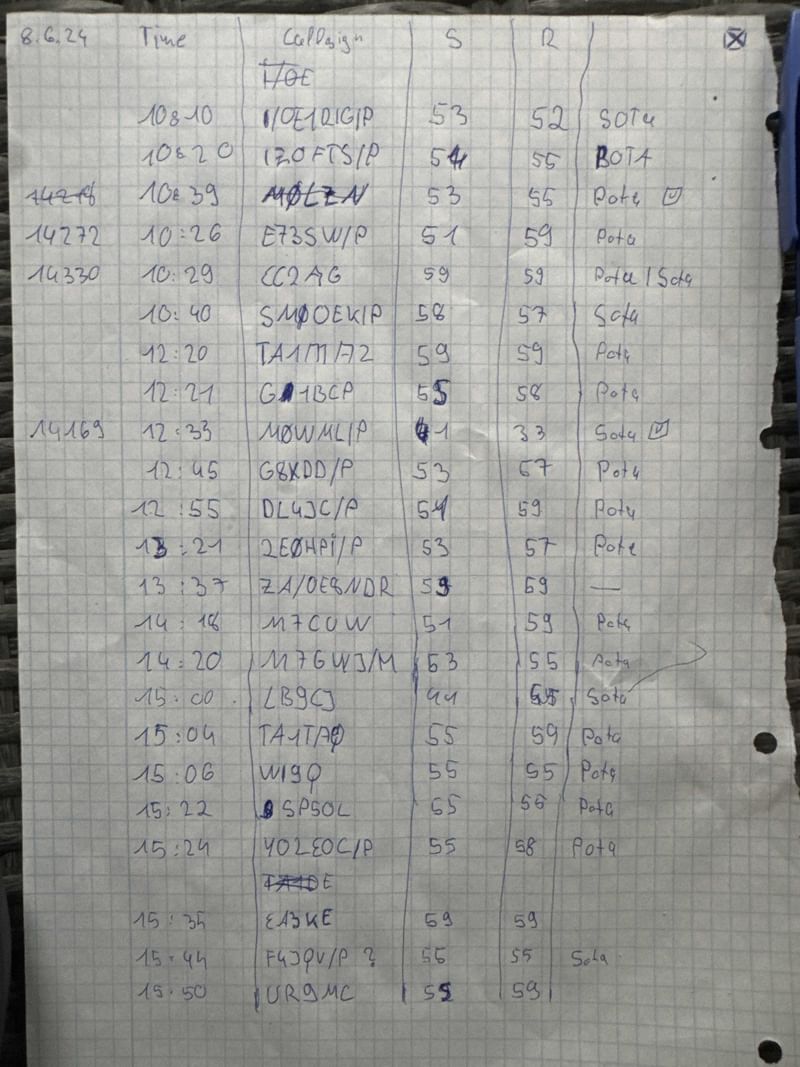 8.6.24 Time Callsign S R
I/OE
10:10 I/OE1RIG/P 53 52 SOTA
10:20 IZ0FTS/P 54 55 BOTA
14218 10:39 M0LZN 53 55 Pota
14272 10:26 E73SW/P 51 59 Pota
14330 10:29 CC2AG 59 59 Pota / Sota
10:40 SM0OEK/P 58 57 Sota
12:20 59 59 Pota
12:21 G1BCP 55 58 Pota
14169 12:33 M0WML/P 41 33 Sota
12:45 G8XDD/P 53 57 Pota
12:55 DL4JC/P 54 59 Pota
13:21 2E0HPI/P 53 57 Pota
13:37 ZA/OE8NDR 59 59 —
14:18 M7CUW 51 59 Pota
14:20 M7GWJ/M 53 55 Pota
15:00 LB9CJ 41 Sota
15:04 TA1TAØ 55 59 Pota
15:06 55 55 Pota
15:22 SP5OL 55 55 Pota
15:24 YO2EOC/P 55 58 Pota
15:35 EA3KE 59 59
15:44 F4JQV/P ? 55 55 Sota
15:50 UR9MC 55 59